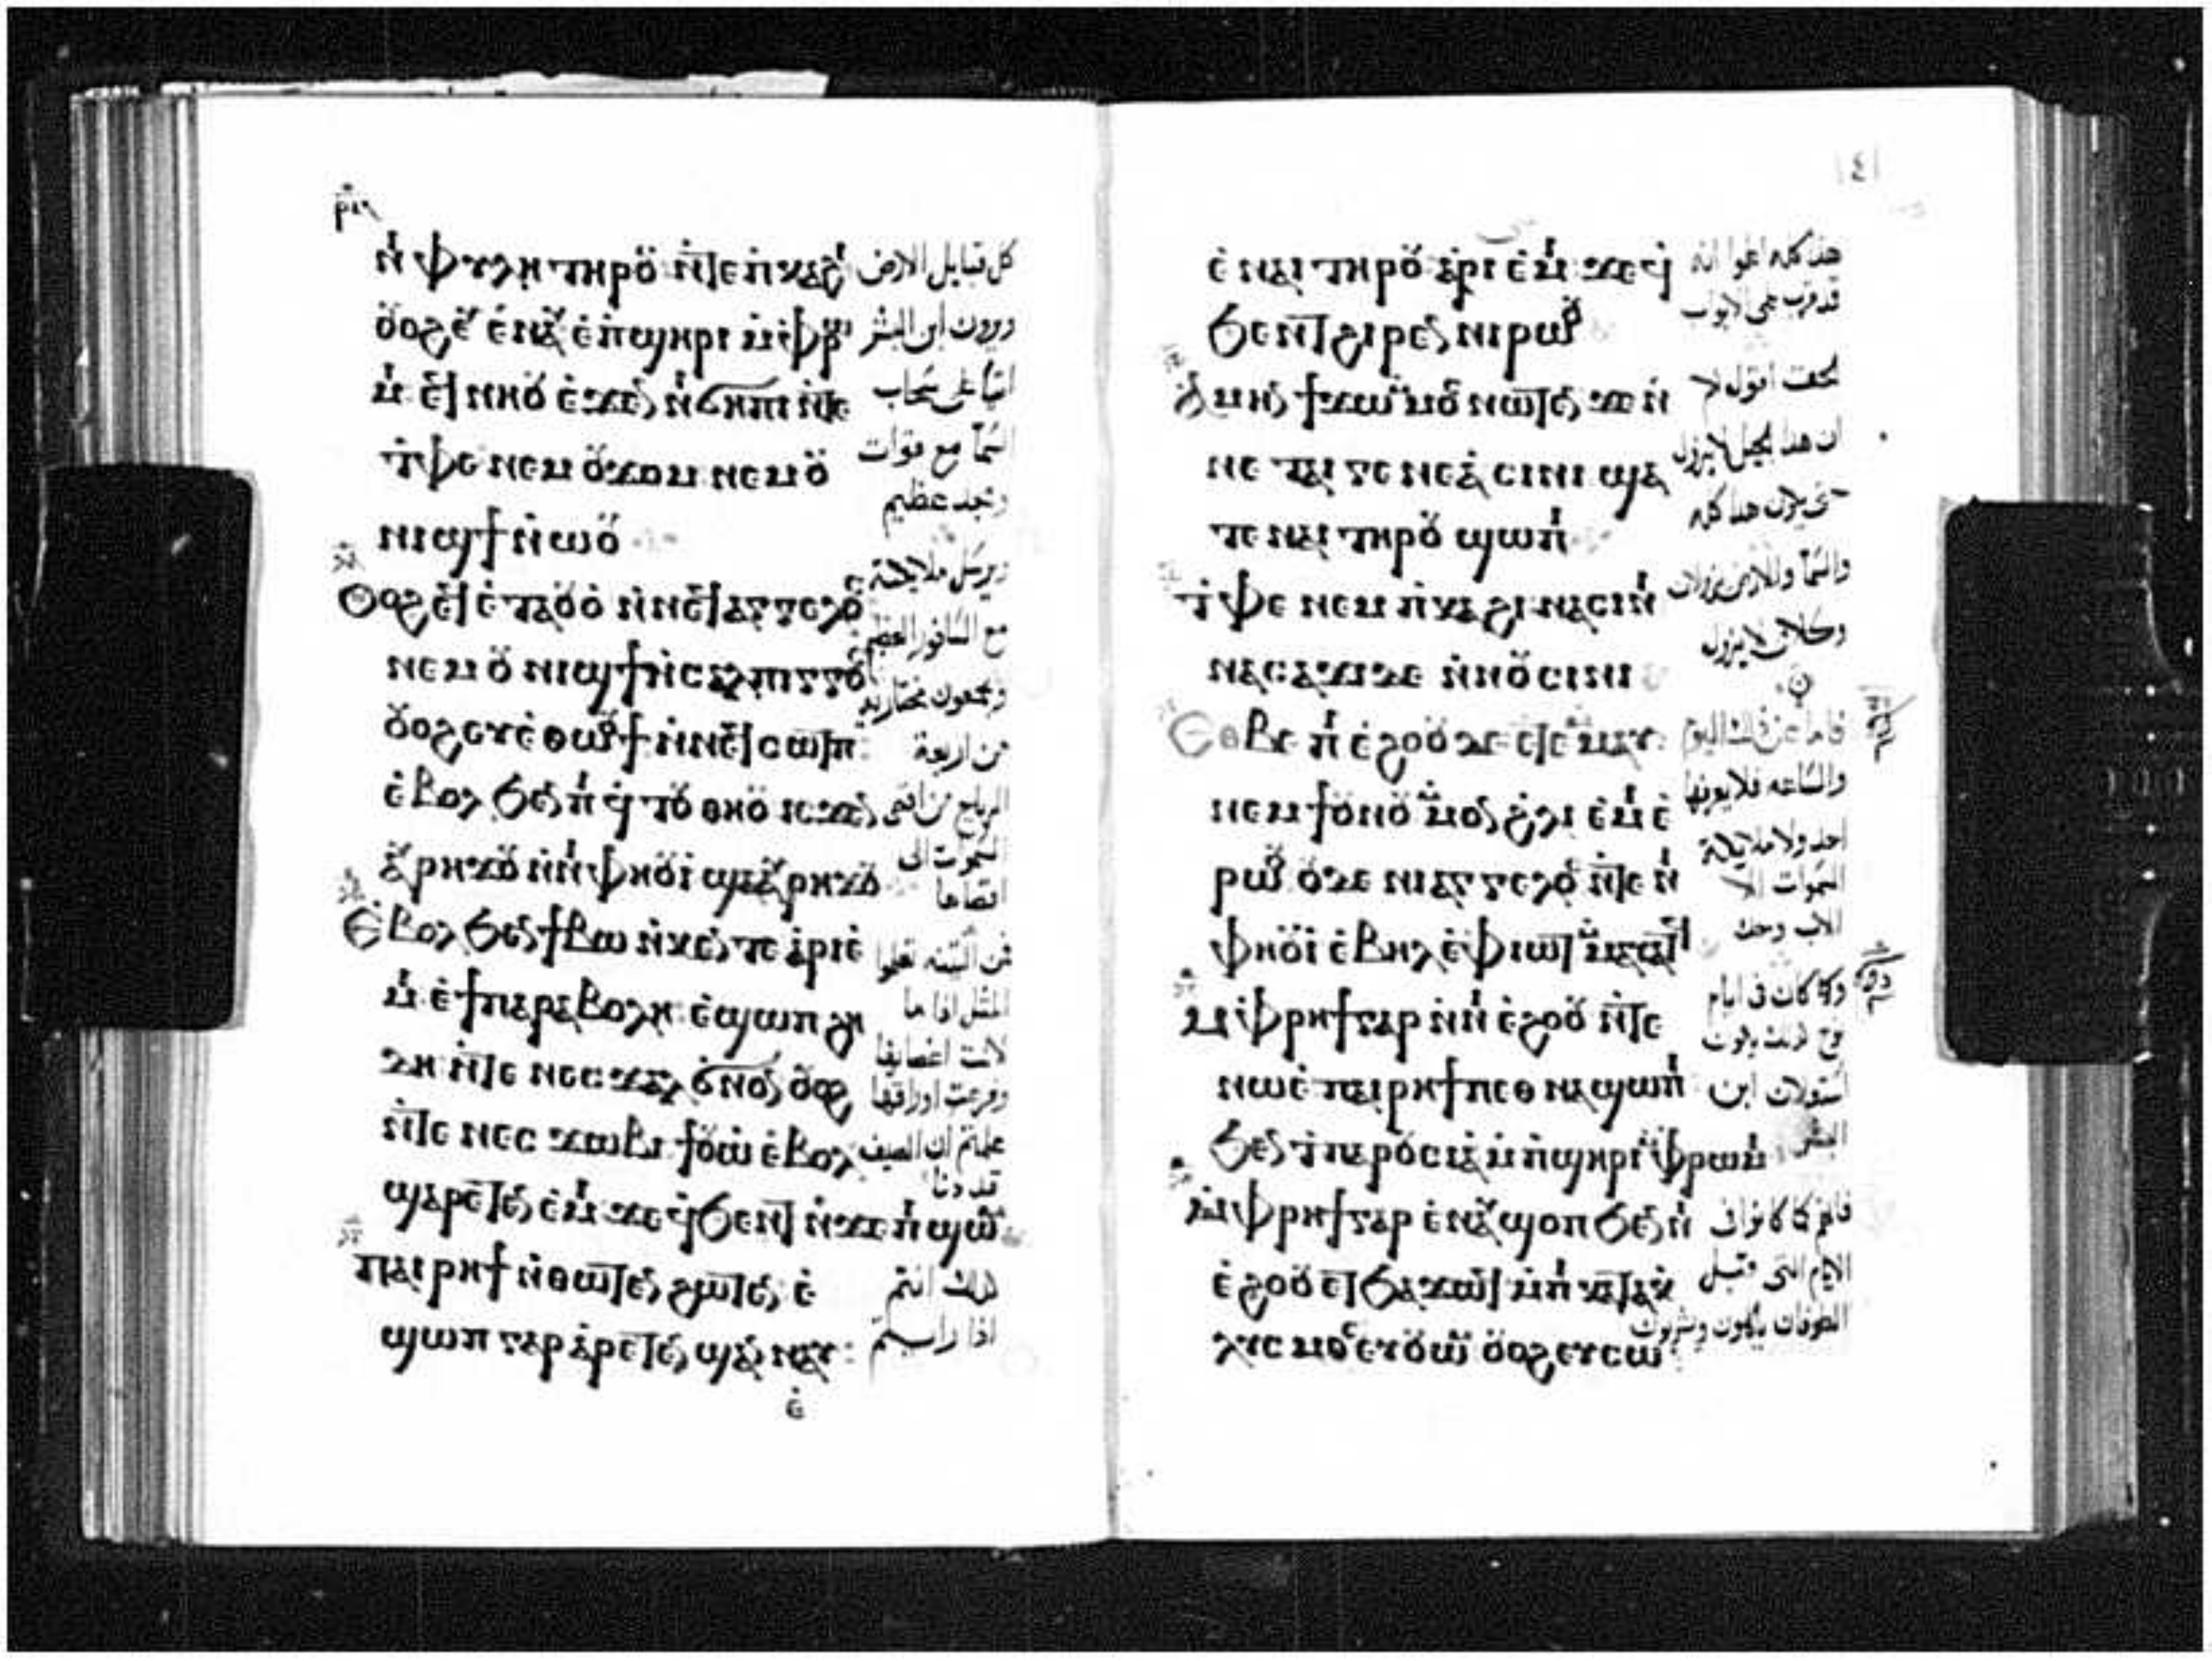 ⲣⲓⲍ
ⲛ̀ⲫⲩⲗⲏ ⲧⲏⲣⲟⲩ ⲛ̀ⲧⲉ ⲡ̀ⲕⲁϩⲓ
ⲟⲩⲟϩ ⲉⲩⲉ̀ⲛⲁⲩ ⲉ̀ⲡϣⲏⲣⲓ ⲙ̀ⲫⲣⲱⲙⲓ
ⲉϥⲛⲏⲟⲩ ⲉ̀ϫⲉⲛ ⲛ̀ϭⲏⲡⲓ ⲛ̀ⲧⲉ
ⲧ̀ⲫⲉ ⲛⲉⲙ ⲟⲩϫⲟⲙ ⲛⲉⲙ ⲟⲩ
ⲛⲓϣϯ ⲛ̀ⲱⲟⲩ
Ⲟⲩⲟϩ ⲉϥⲉ̀ⲧⲁⲟⲩⲟ̀ ⲛ̀ⲛⲉϥⲁⲅⲅⲉⲗⲟⲥ
ⲛⲉⲙ ⲟⲩⲛⲓϣϯ ⲛ̀ⲥⲁⲗⲡⲓⲅⲅⲟⲥ
ⲟⲩⲟϩ ⲉⲩⲉ̀ⲑⲱⲟⲩϯ ⲛ̀ⲛⲉϥⲥⲱⲧⲡ
ⲉ̀ⲃⲟⲗ ϧⲉⲛ ⲡⲓϥⲧⲟⲩ ⲑⲏⲟⲩ ⲓⲥϫⲉⲛ
ⲁⲩⲣⲏϫⲟⲩ ⲛ̀ⲛⲓⲫⲏⲟⲩⲓ̀ ϣⲁ ⲁⲩⲣⲏϫⲟⲩ
Ⲉ̀ⲃⲟⲗ ϧⲉⲛ ϯⲃⲱ ⲛ̀ⲕⲉⲛⲧⲉ ⲁ̀ⲣⲓⲉ̀
ⲙⲓ ⲉ̀ϯⲡⲁⲣⲁⲃⲟⲗⲏ ⲉ̀ϣⲱⲡ ϩⲏ
ⲇⲏ ⲛ̀ⲧⲉ ⲛⲉⲥϫⲁⲗ ϭⲛⲟⲛ ⲟⲩⲟϩ
ⲛ̀ⲧⲉ ⲛⲉⲥϫⲱⲃⲓ ϯⲟⲩⲱ ⲉ̀ⲃⲟⲗ
ϣⲁⲣⲉⲧⲉⲛ ⲉ̀ⲙⲓ ϫⲉ ϥ̀ϧⲉⲛⲧ ⲛ̀ϫⲉ ⲡⲓϣⲱⲙ
Ⲡⲁⲓⲣⲏϯ ⲛ̀ⲑⲱⲧⲉⲛ ϩⲱⲧⲉⲛ ⲉ̀
ϣⲱⲡ ⲅⲁⲣ ⲁ̀ⲣⲉⲧⲉⲛϣⲁⲛⲛⲁⲩ
ⲉ̀
كل قبايل الارض
ويرون ابن البشر
اتيا على سحاب
السما مع قوات
ومجد عظيم
ويرسل ملايكته
مع السافور العظيم
ويجمعون مختاريه
من اربعة
الرياح من اقصى
السموات الى
اقصاها
فمن التينه تعلموا
المثل اذا ما
لانت اغصانها
وفرعت اوراقها
علمتم ان الصيف
قد دنا
كذلك انتم
اذا رايتم
ⲉ̀ⲛⲁⲓ ⲧⲏⲣⲟⲩ ⲁ̀ⲣⲓⲉ̀ⲙⲓ ϫⲉ ϥ̀
ϧⲉⲛⲧ ϩⲓⲣⲉⲛ ⲛⲓⲣⲱⲟⲩ
Ⲁ̀ⲙⲏⲛ ϯϫⲱ ⲙⲙⲟⲥ ⲛⲱⲧⲉⲛ ϫⲉ ⲛ̀
ⲛⲉ ⲧⲁⲓⲅⲉⲛⲉⲁ̀ ⲥⲓⲛⲓ ϣⲁ
ⲧⲉ ⲛⲁⲓ ⲧⲏⲣⲟⲩ ϣⲱⲡⲓ
Ⲧ̀ⲫⲉ ⲛⲉⲙ ⲡ̀ⲕⲁϩⲓ ⲛⲁⲥⲓⲛⲓ
ⲛⲁⲥⲁϫⲓ ⲇⲉ ⲛ̀ⲛⲟⲩⲥⲓⲛⲓ
Ⲉⲑⲃⲉ ⲡⲓⲉ̀ϩⲟⲟⲩ ⲇⲉ ⲉⲧⲉⲙⲙⲁⲩ
ⲛⲉⲙ ϯⲟⲩⲛⲟⲩ ⲙⲙⲟⲛ ϩ̀ⲗⲓ ⲉ̀ⲙⲓ ⲉ̀
ⲣⲱⲟⲩ ⲟⲩⲇⲉ ⲛⲓⲁⲅⲅⲉⲗⲟⲥ ⲛ̀ⲧⲉ ⲛⲓ
ⲫⲏⲟⲩⲓ̀ ⲉ̀ⲃⲏⲗ ⲉ̀ⲫⲓⲱⲧ ⲙⲙⲁⲩⲁⲧϥ
Ⲙ̀ⲫⲣⲏϯ ⲅⲁⲣ ⲛ̀ⲛⲓⲉ̀ϩⲟⲟⲩ ⲛ̀ⲧⲉ
ⲛⲱⲉ̀ ⲡⲁⲓⲣⲏϯ ⲡⲉⲑⲛⲁϣⲱⲡⲓ
ϧⲉⲛ ⲧ̀ⲡⲁⲣⲟⲩⲥⲓⲁ̀ ⲙ̀ⲡ̀ϣⲏⲣⲓ ⲙ̀ⲫⲣⲱⲙⲓ
Ⲙ̀ⲫⲣⲏϯ ⲅⲁⲣ ⲉ̀ⲛⲁⲩϣⲟⲡ ϧⲉⲛ ⲛⲓ
ⲉ̀ϩⲟⲟⲩ ⲉⲧϧⲁϫⲱϥ ⲙ̀ⲡⲓⲕⲁⲧⲁⲕ
ⲗⲩⲥⲙⲟⲥ ⲉⲩⲟⲩⲱⲙ ⲟⲩⲟϩ ⲉⲩⲥⲱ
هذا كله اعلموا انه
قد قرب على الابواب
الحق اقول لكم
ان هذا الجيل لا يزول
حتى يكون هذا كله
والسما والارض يزولان
وكلامي لا يزول
فاما عن ذلك اليوم
والساعه فلا يعرفها
احد ولا ملايكة
السموات الا
الاب وحده
وكما كان في ايام
نوح كذلك يكون
استعلان ابن
البشر
فانهم كما كانوا في
الايام التي قبل
الطوفان ياكلون ويشربون